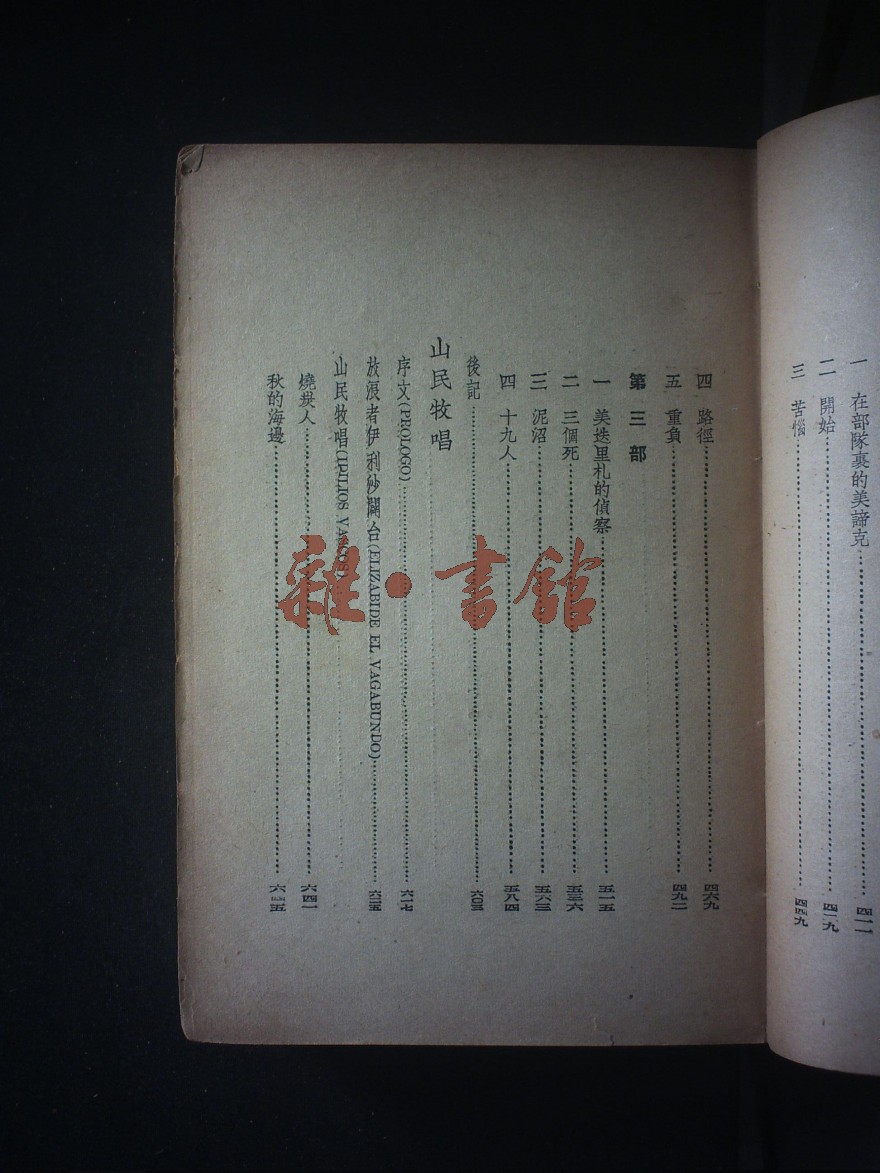 一 在部隊裏的美諦克……四一一
二 開始……四二九
三 苦惱……四四九
四 路徑……四六九
五 重負……四九二
第三部
一 美迭里札的偵察……五一五
二 三個死……五三六
三 泥沼……五六三
四 十九人……五八四
後記……六〇三
山民牧唱
序文(PROLOGO)……六一七
放浪者伊利沙闢台(ELIZABIDE EL VAGABUNDO)……六二五
山民牧唱(IDILIOS VASCOS)
燒炭人……六四一
秋的海邊……六四五
雜·書館